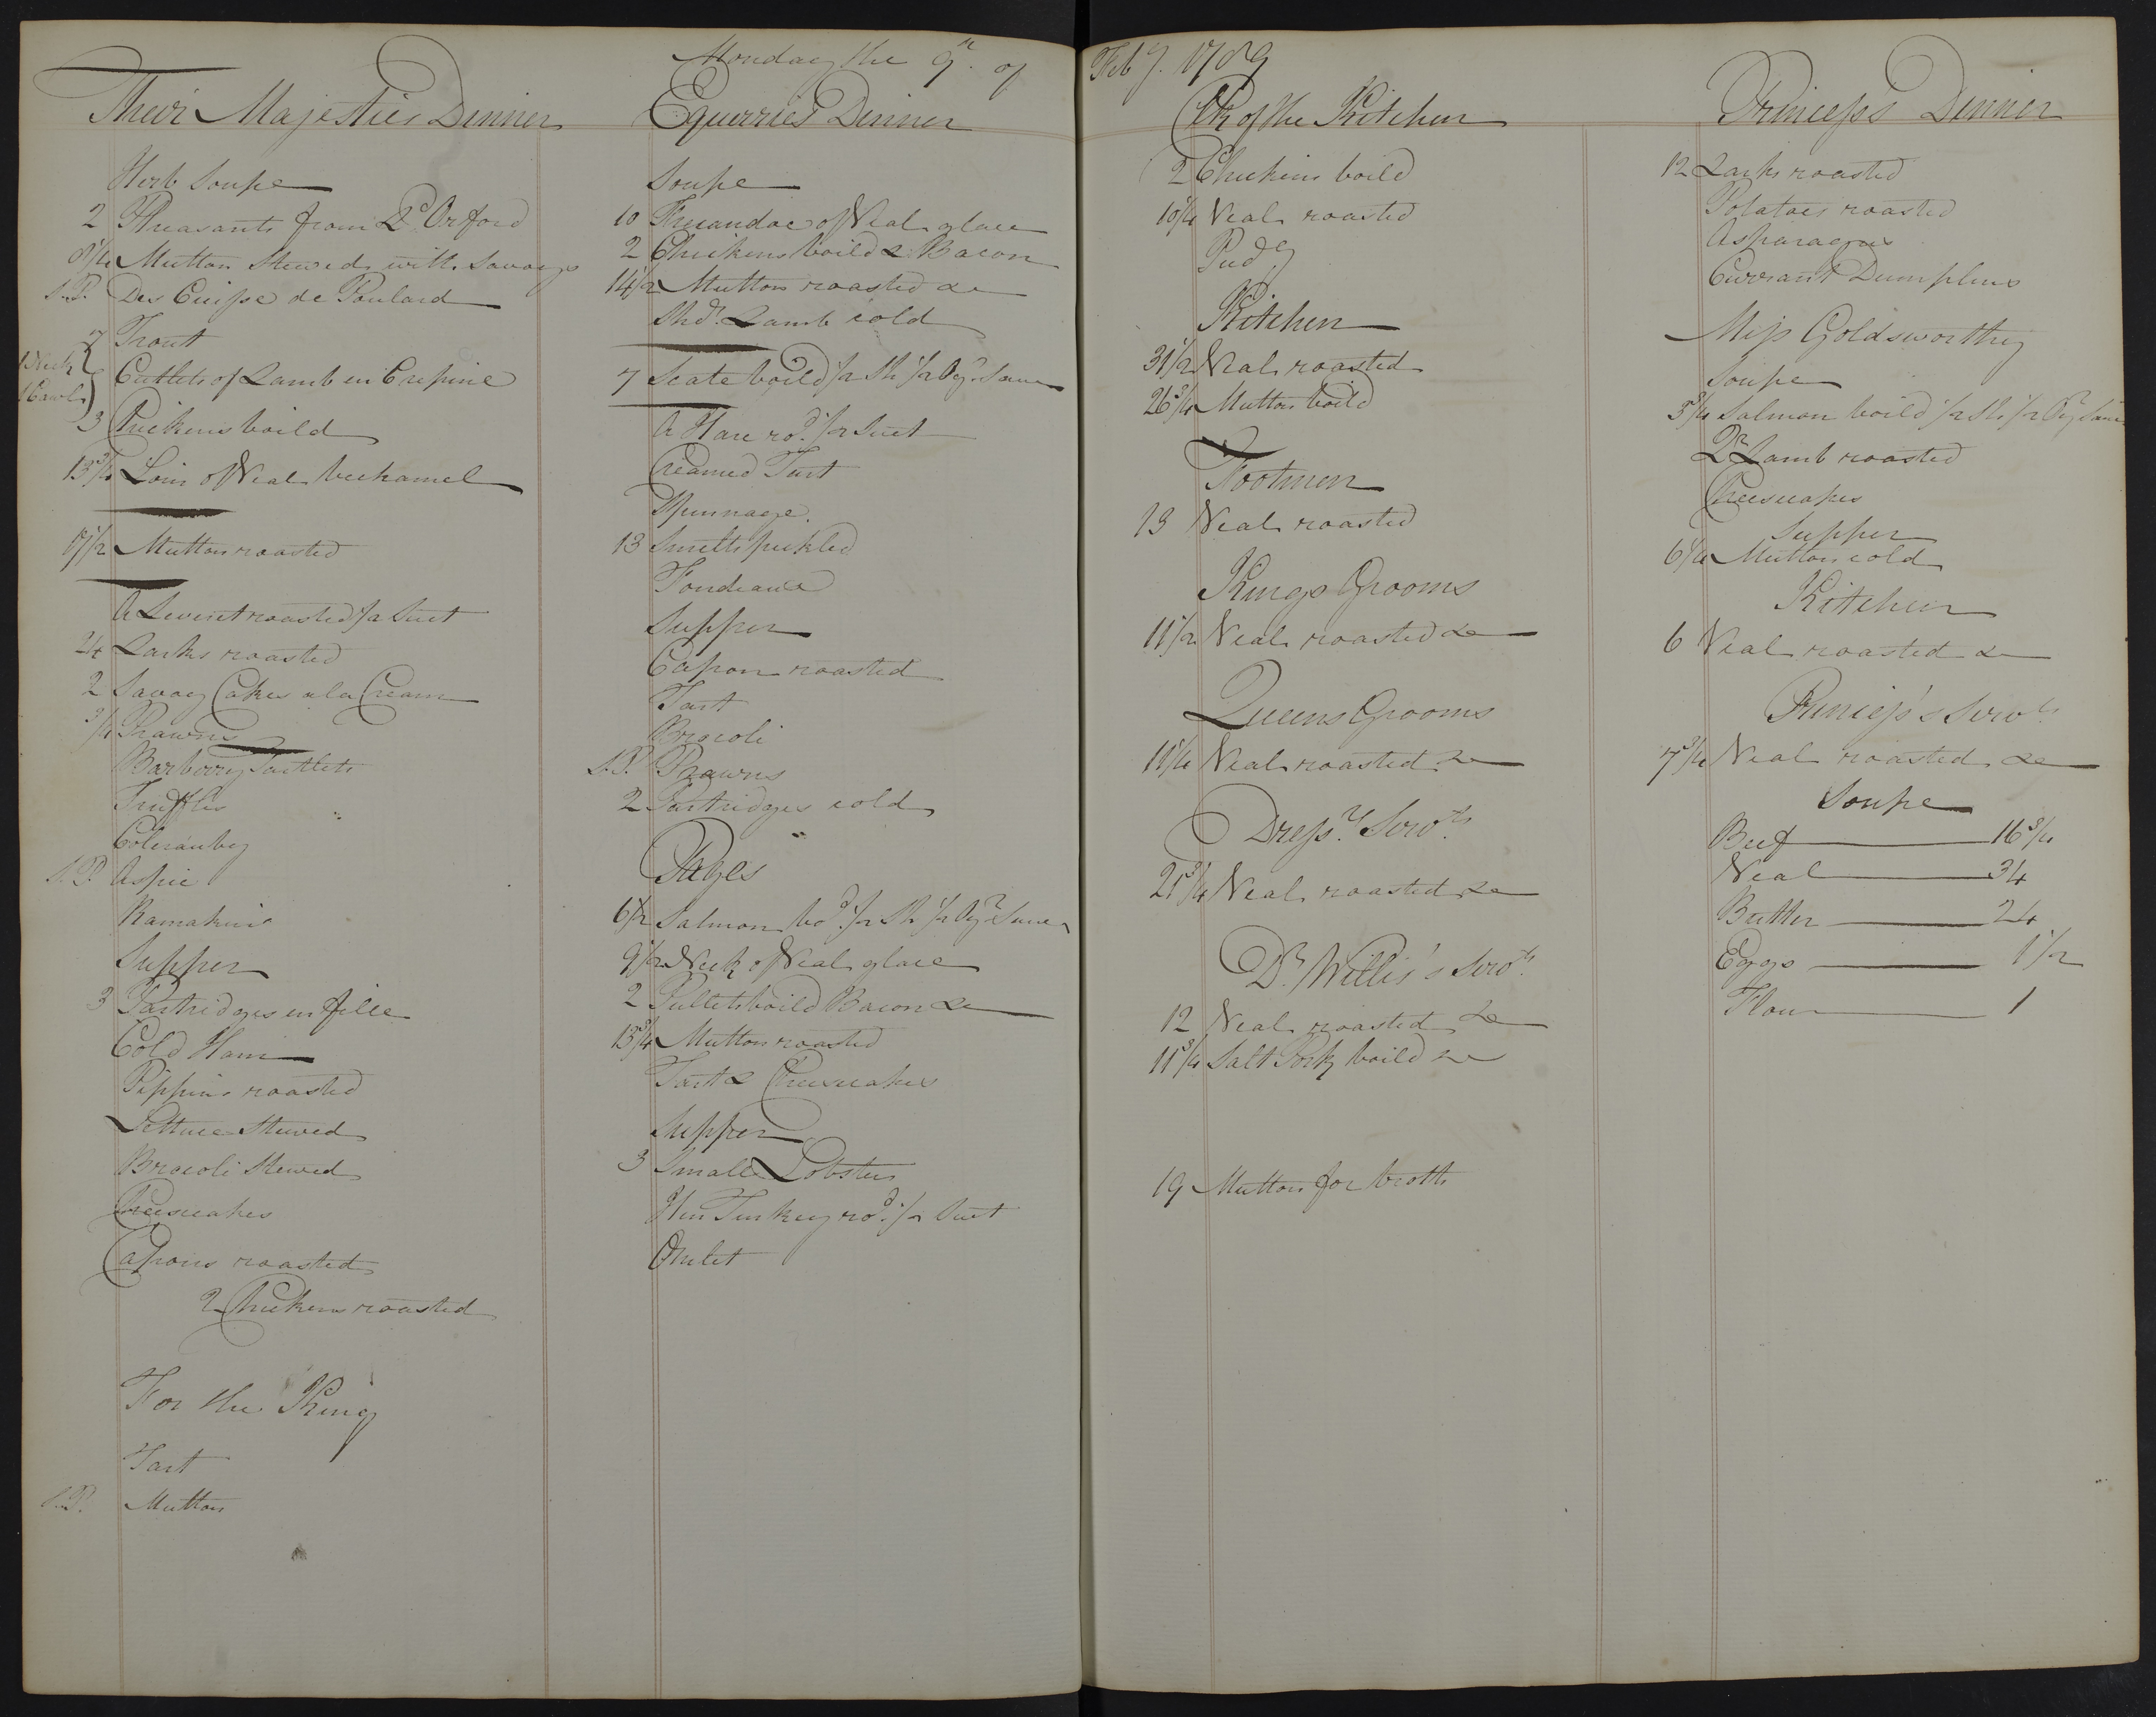 Monday the 9th. of Feby. 1789
Their Majesties Dinner
Herb Soupe
2 Pheasants from Ld. Orford
8 1/4 Mutton Stewed with Savoys
S.P. Des Cuisse de Poulard
7 Trout
1 Neck
1 Cawl } Cutlets of Lamb en Crepine
3 Chickens boild
13 3/4 Loin of Veal bechamel
17 1/2 Mutton roasted
A Leveret roasted 1/2 Suet
24 Larks roasted
2 Savoy Cakes a la Cream
3/4 Prawns
Barberry Tartlets
Truffles
Celerauby
S.P. Aspic
Ramakins
Supper
3 Partridges en fille
Cold Ham
Pippins roasted
Lettuce Stewed
Brocoli Stewed
Cheescakes
Capons roasted
2 Chickens roasted
For the King
Tart
S.P. Mutton
Equerries Dinner
Soupe
10 Fricandoe of Veal glace
2 Chickens boild & Bacon
14 1/2 Mutton roasted &c
Shdr. Lamb cold
7 Scate boild 1/2 Sh 1/2 Oyr. Sauce
A Hare rod. 1/2 Suet
Creamed Tart
Spinnage.
13 Smelts pickled
Fondeaux
Supper
Capon roasted
Tart
Brocoli
S.P. Prawns
2 Partridges cold
Pages
6 1/2 Salmon bod. 1/2 Sh 1/2 Oyr. Sauce
9 1/2 Neck of Veal glace
2 Pullets boild Bacon &c
13 3/4 Mutton roasted
Tart & Cheescakes
Supper
3 Small Lobsters
Hen Turkey rod. 1/2 Suet
Omlet
Clk of the Kitchen
2 Chickens boild
10 1/4 Veal roasted
Pudg
Kitchen
31 1/2 Veal roasted
26 3/4 Mutton boild
Footmen
13 Veal roasted
Kings Grooms
11 1/2 Veal roasted &c
Queens Grooms
11 1/4 Veal roasted &c
Dressrs. Servts.
21 3/4 Veal roasted &c
Dr. Willis's Servts.
12 Veal roasted &c
11 3/4 Salt Pork boild &c
19 Mutton for broth
Princess's Dinner
12 Larks roasted
Potatoes roasted
Asparagus
Currant Dumplins
Miss Goldsworthy
Soupe
3 3/4 Salmon boild 1/2 Sh 1/2 Oyr Sauce
Qr Lamb roasted
Cheescakes
Supper
6 1/4 Mutton cold
Kitchen
6 Veal roasted &c
Princess's Servts.
7 3/4 Veal roasted &c
Soupe
Beef 16 3/4
Veal 34
Butter 24
Eggs 1 1/2
Flour 1